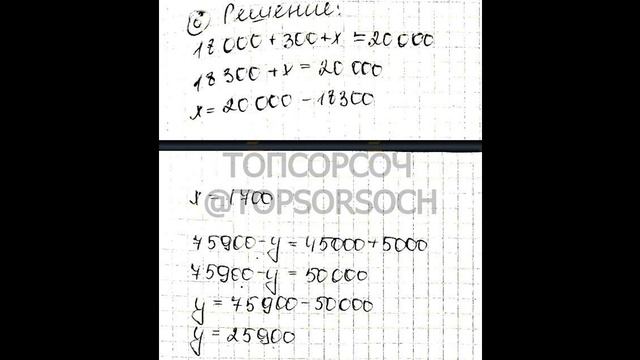 6 Решение:
18 000 + 300 + x = 20 000
18 300 + x = 20 000
x = 20 000 - 18300
ТОПСОРСОЧ
x = 1700
@TOPSORSOCH
75900 - y = 45000 + 5000
75900 - y = 50000
y = 75900 - 50000
y = 25900